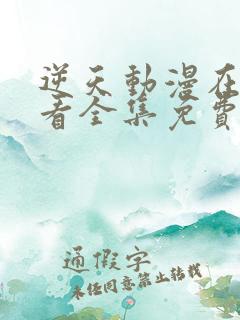 逆天動漫在
看全集免費
通假字
未经同意禁止转载